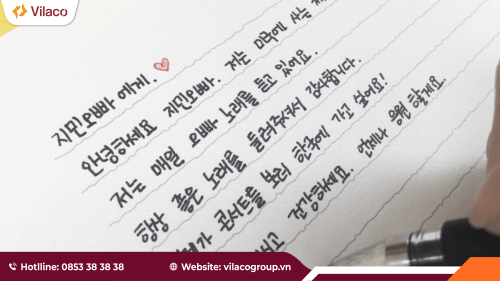 Vilaco
지민오빠에게.
안녕하세요 지민오빠. 저는 미국에 사는
저는 매일 오빠 노래를 듣고 있어요.
항상 좋은 노래를 들려주셔서 감사합니다.
콘서트를 보러 한국에 가고 싶어요!
건강하세요. 언제나 응원 할게요.
Hotlline: 0853 38 38 38
Website: vilacogroup.vn